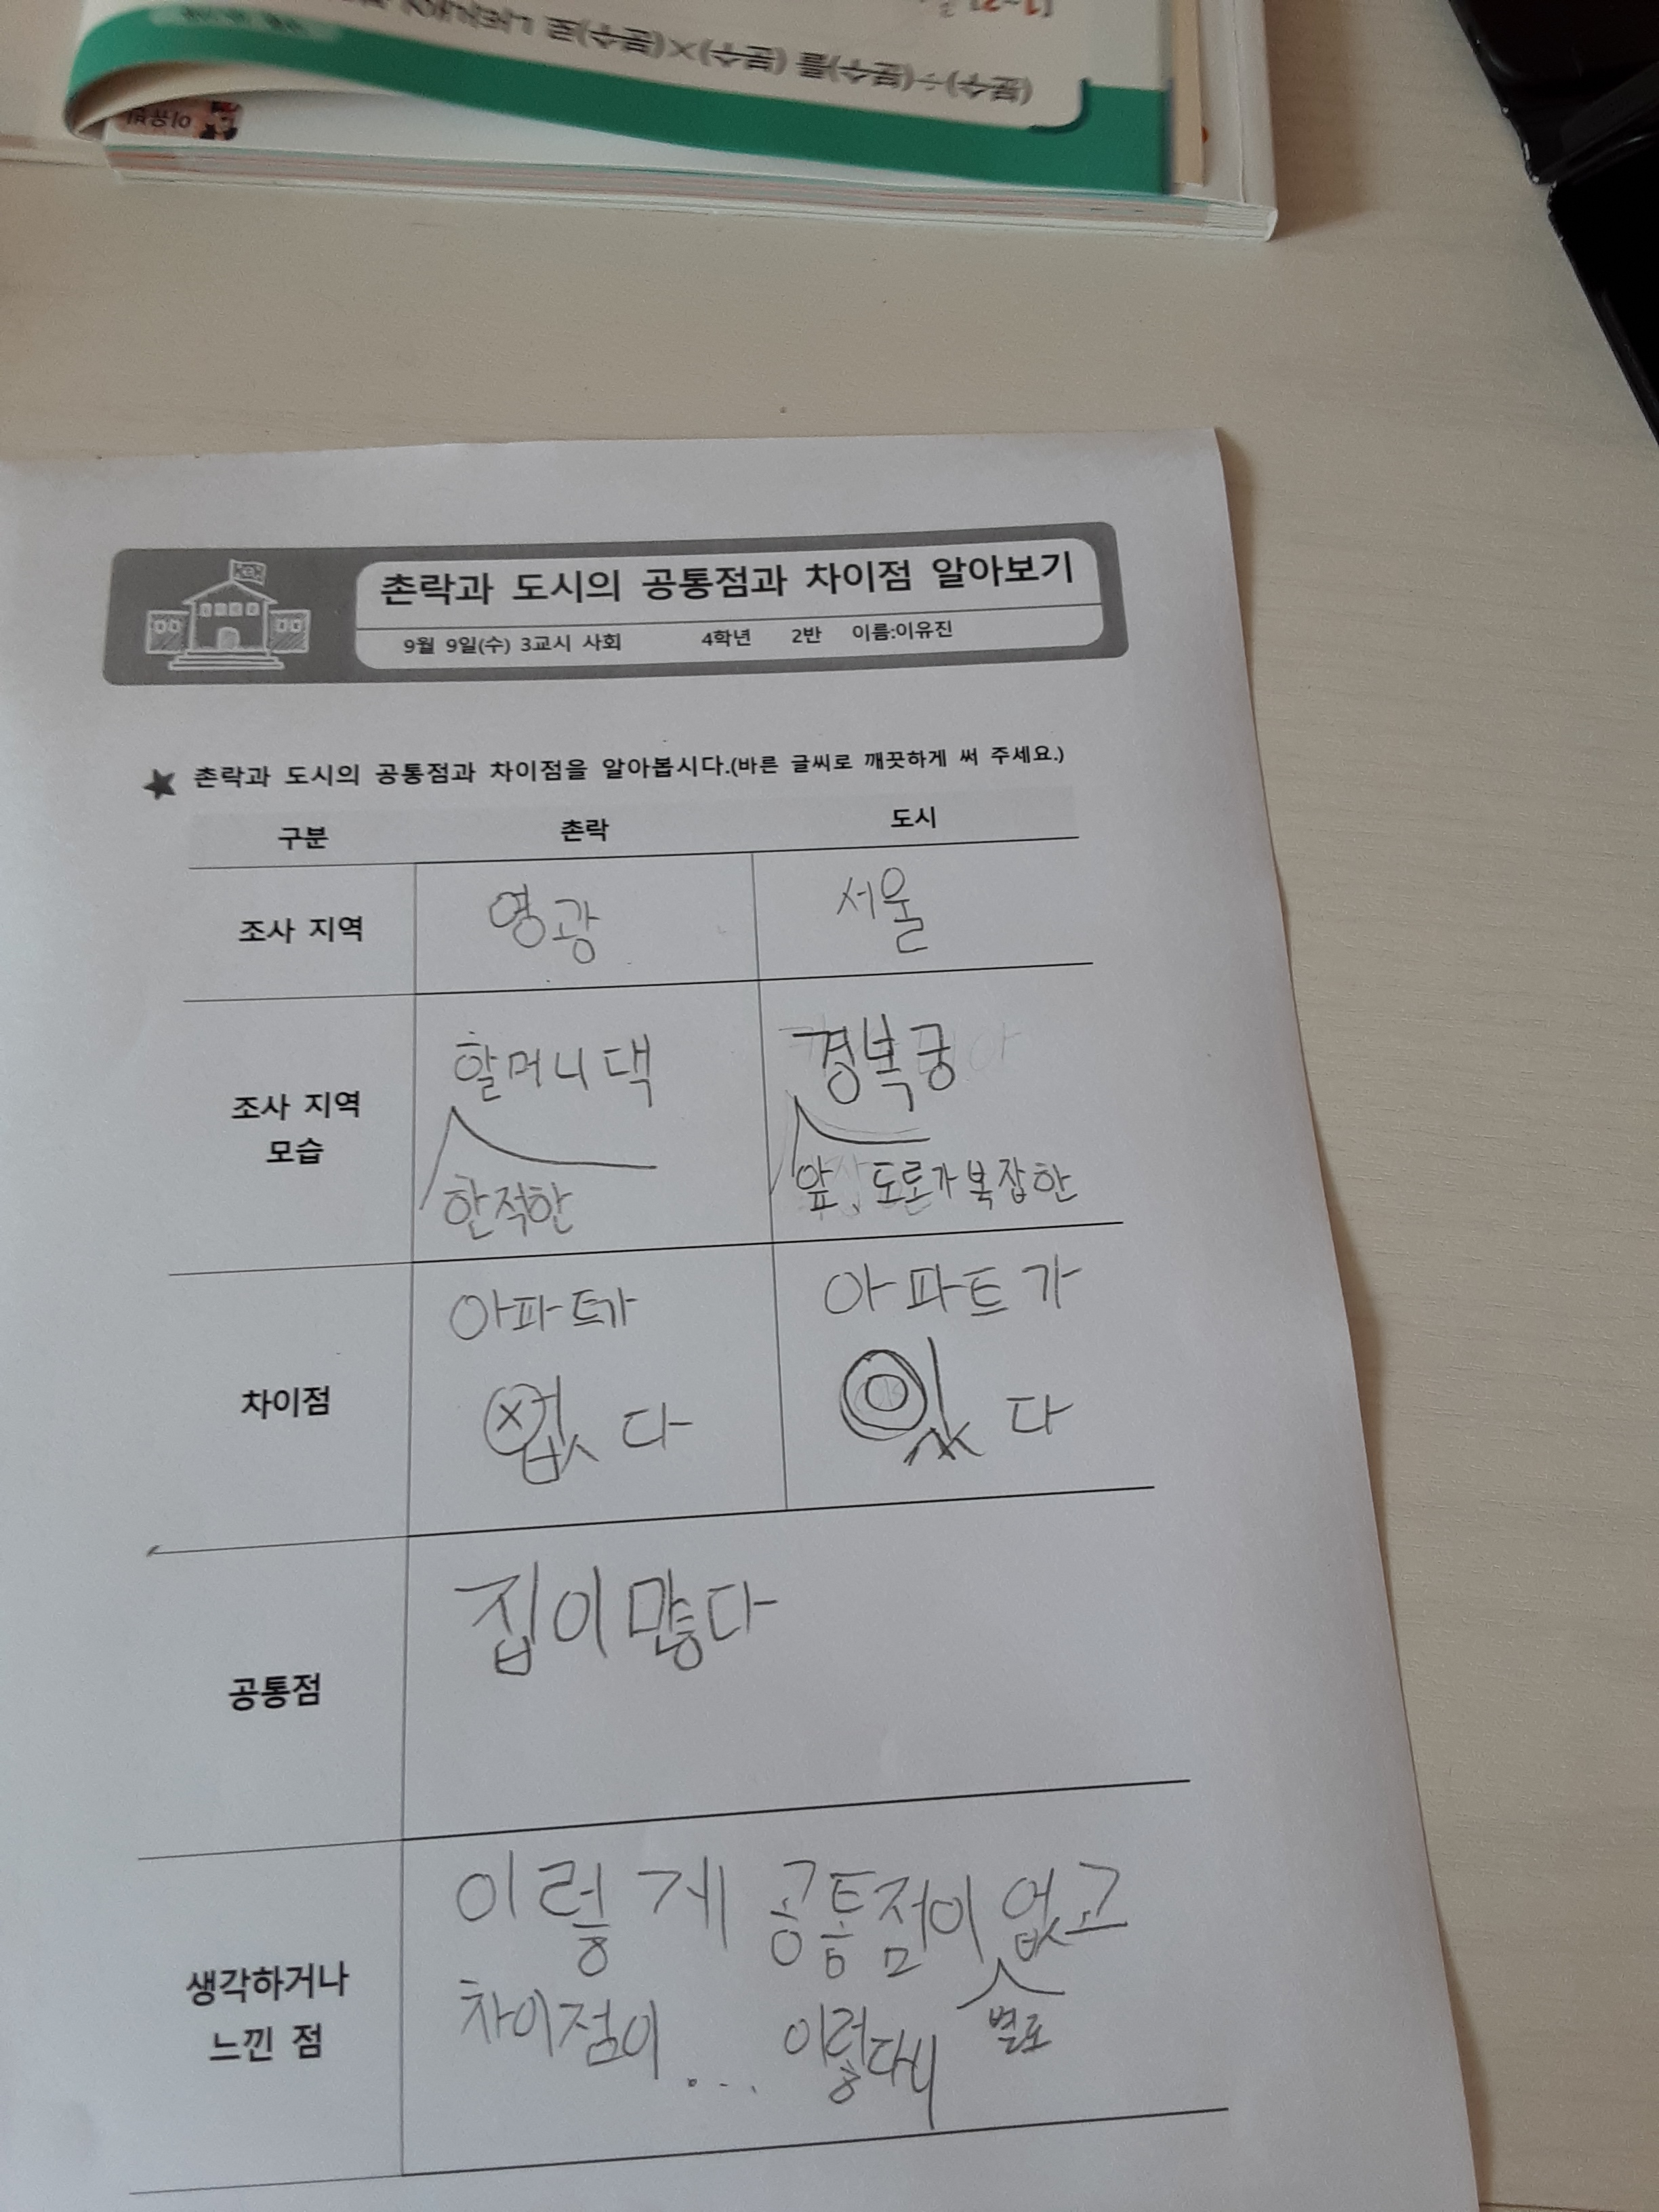 (분수)÷(분수)를 (분수)×(분수)로 나타내어
촌락과 도시의 공통점과 차이점 알아보기
9월 9일(수) 3교시 사회 4학년 2반 이름:이유진
★ 촌락과 도시의 공통점과 차이점을 알아봅시다.(바른 글씨로 깨끗하게 써 주세요.)
구분 촌락 도시
조사 지역 영광 서울
조사 지역
모습
할머니댁
한적한
경복궁
앞, 도로가 복잡한
차이점
아파트가
없다
아파트가
있다
공통점
집이 많다
생각하거나
느낀 점
이렇게 공통점이 없고
별로
차이점이... 이렇다니